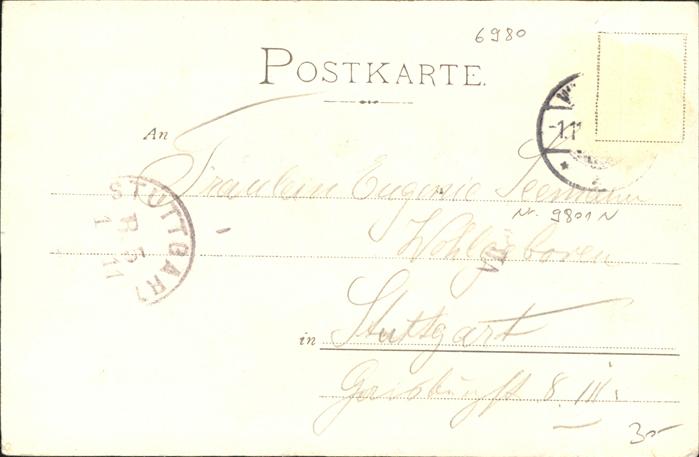 6980
POSTKARTE.
-1.11
An
Fräulein Eugenie Seemann
Nr. 9801 N
Wohlgeboren
VII
STUTTGART
1 11
in Stuttgart
8 III.
30-